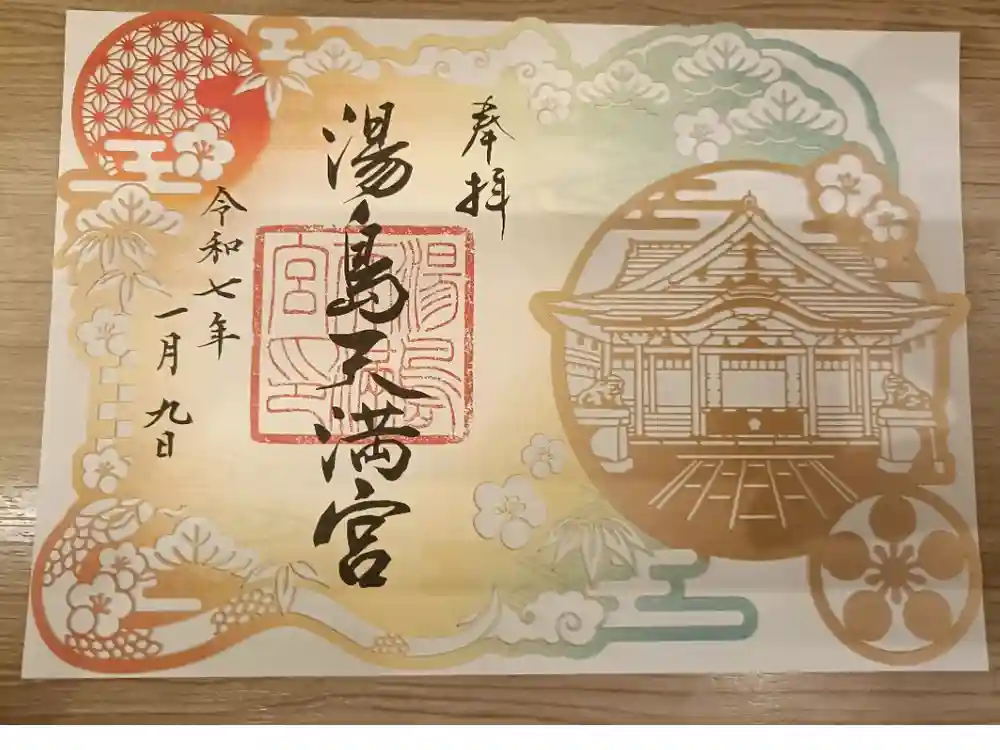 奉拝
湯島天満宮
湯島天満宮印
令和七年
一月九日